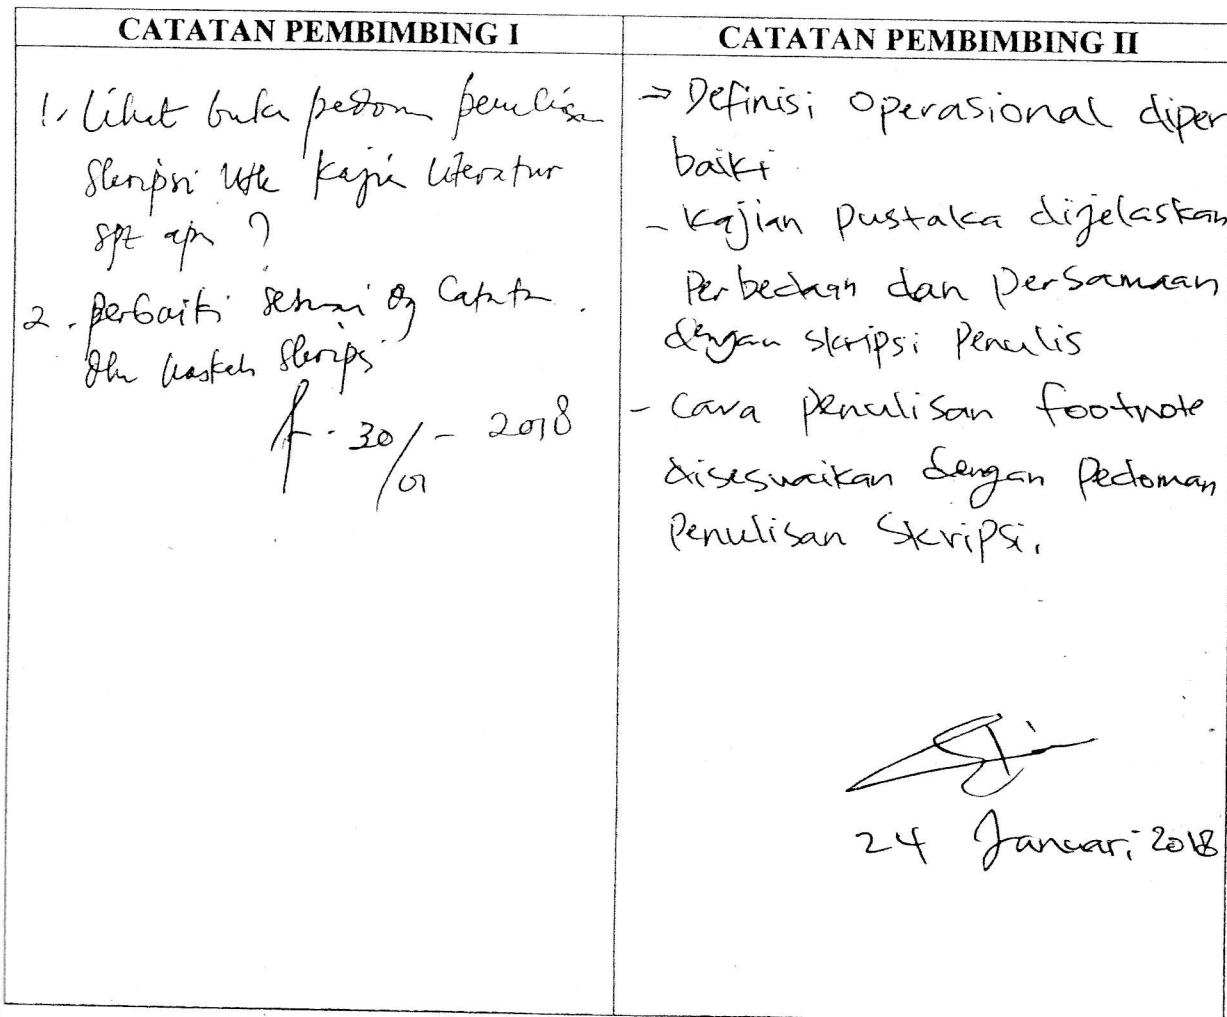 CATATAN PEMBIMBING I
1. Lihat buku pedom penulisan
skripsi utk kajian literatur
spt apa ?
2. perbaiki sesuai dg Catatan.
dlm naskah skripsi
30/01 - 2018
CATATAN PEMBIMBING II
⇒ Definisi operasional diper
baiki
- kajian pustaka dijelaskan
Perbedaan dan persamaan
dengan skripsi Penulis
- Cara penulisan footnote
disesuaikan dengan Pedoman
Penulisan Skripsi.
24 Januari 2018